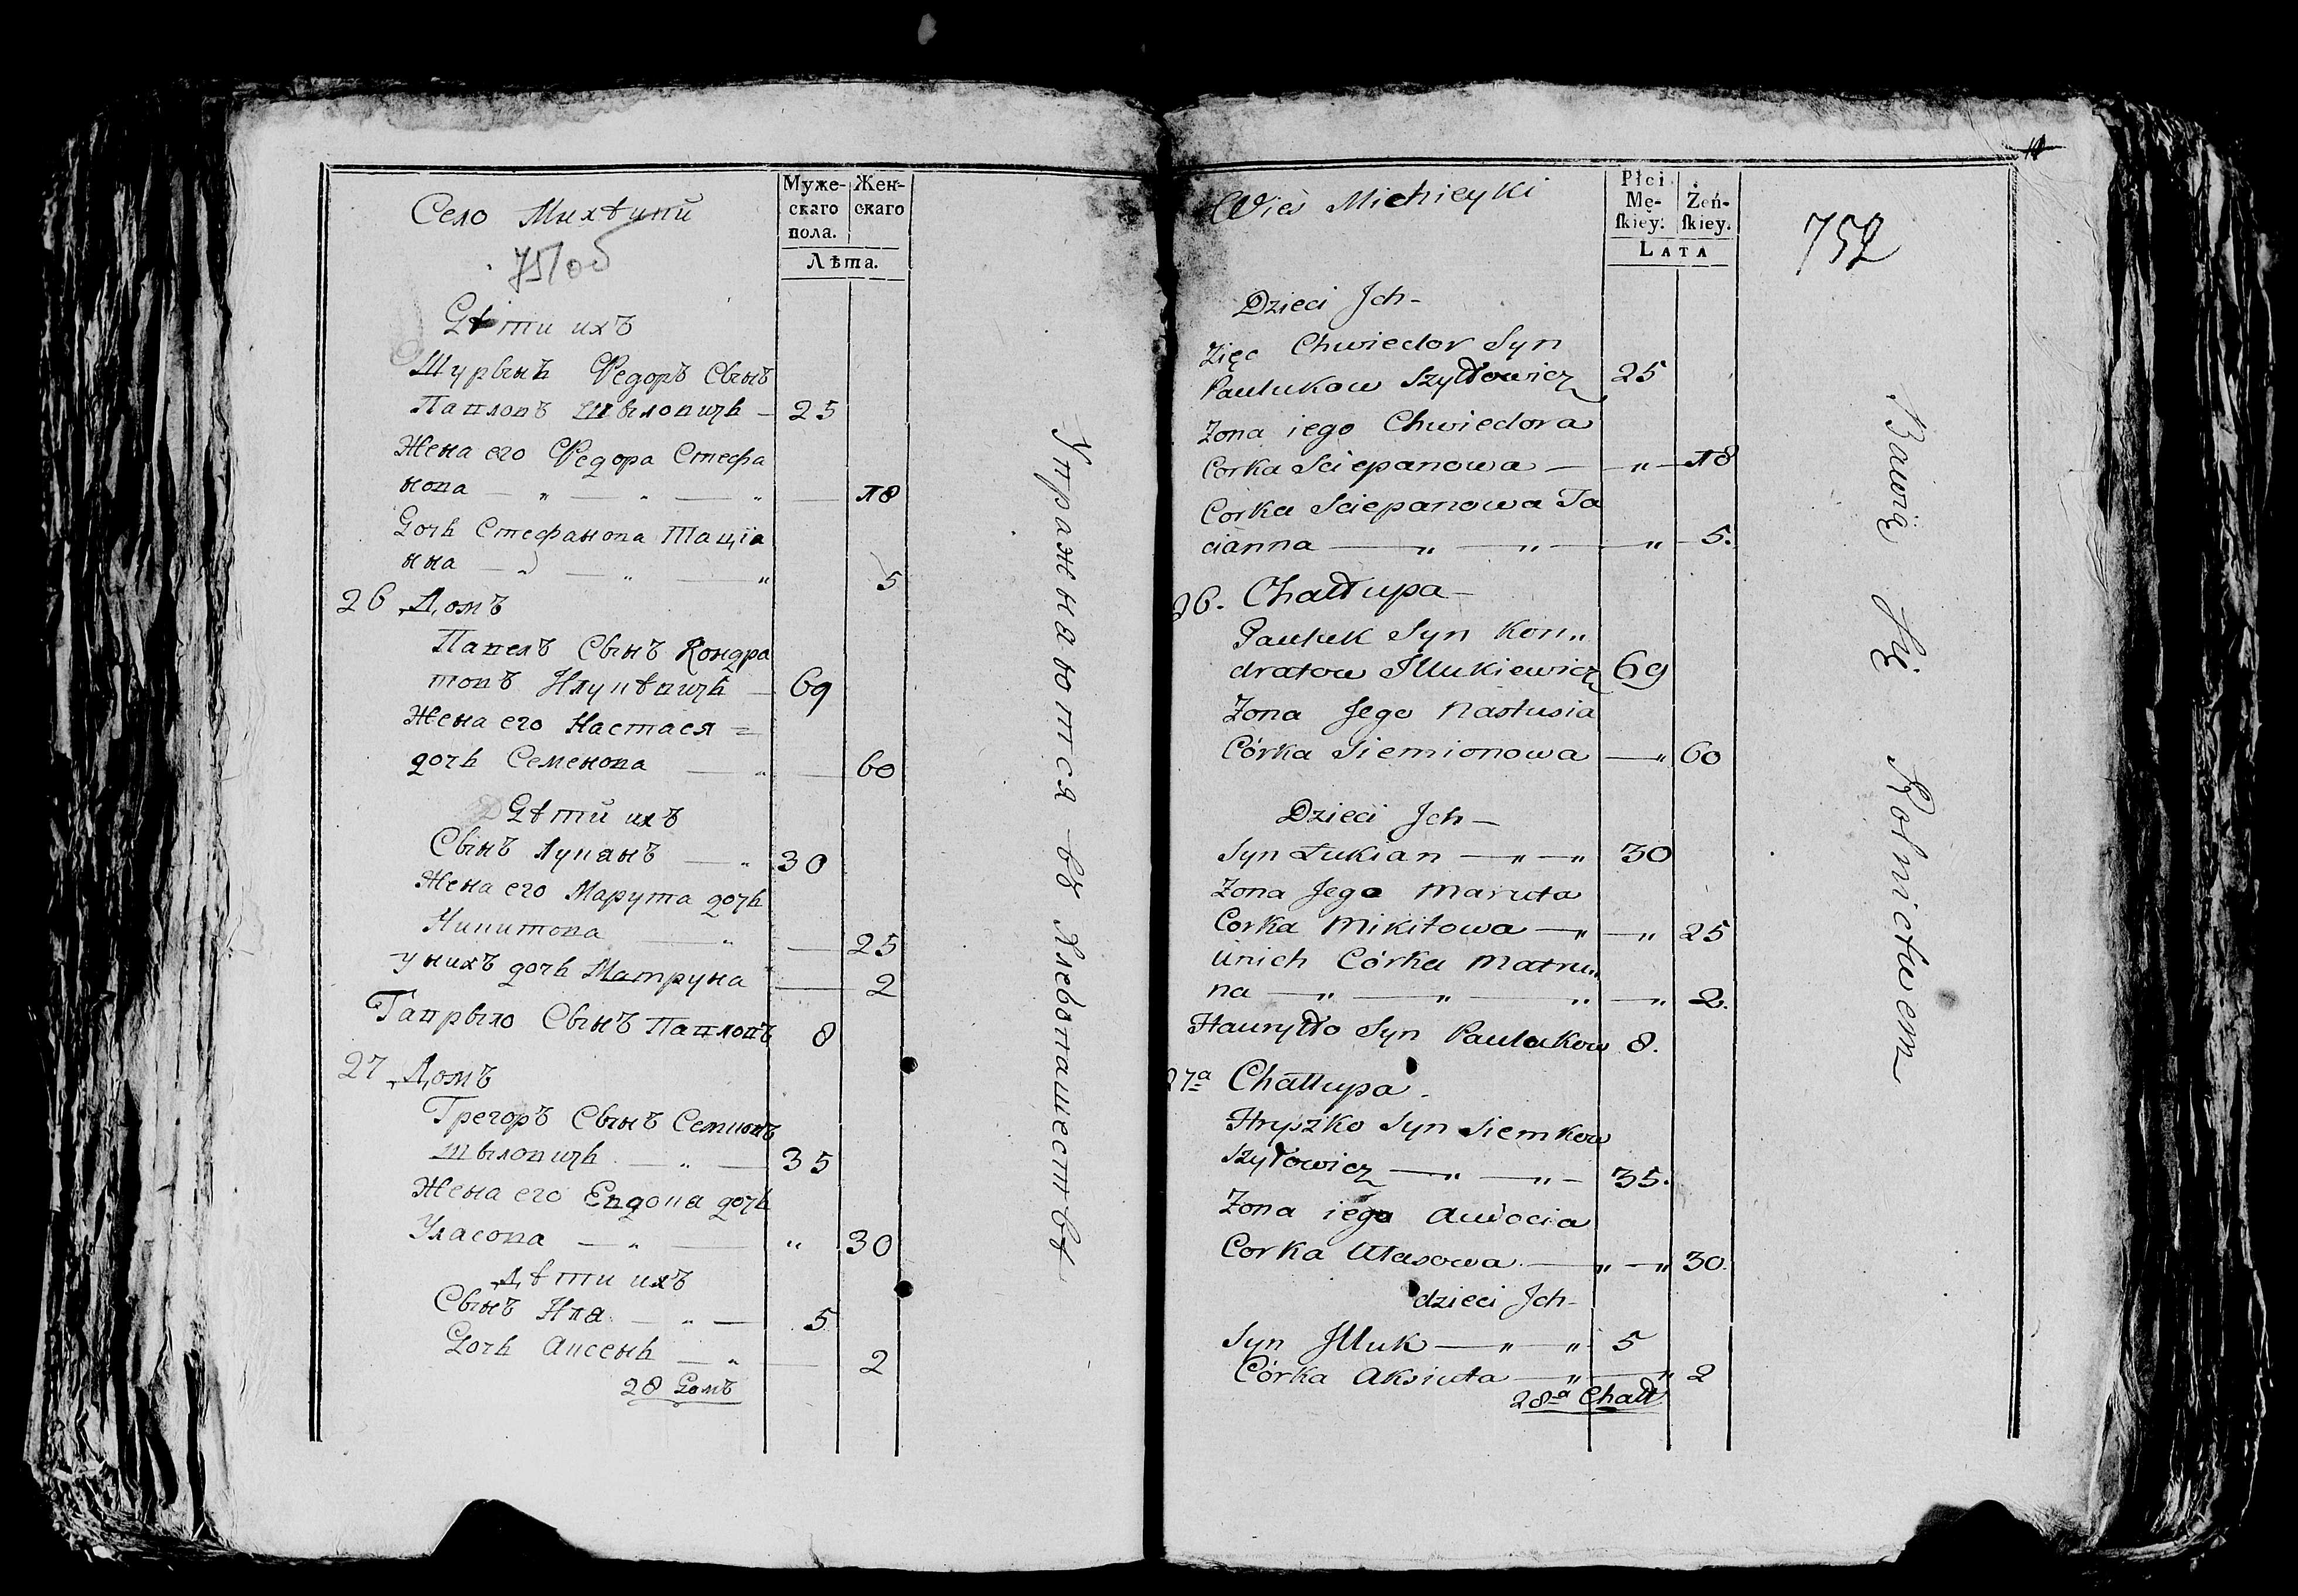 Село Михѣики
751об
Муже-
скаго
пола.
Жен-
скаго
Лѣта.
Дѣти ихъ
Шурынъ Федоръ Сынъ
Павловъ Шыловичъ — 25
Жена его Федора Стефа
нова — „ — „ — „ — 18
Дочь Стефанова Таціа
нна — „ — „ — „ 5
26 Домъ
Павелъ Сынъ Кондра
товъ — 69
Жена его Настася =
дочь Семенова — „ — 60
Дѣти ихъ
Сынъ Лукянъ — „ 30
Жена его Марута дочь
Никитова — „ — 25
у нихъ дочь Матруна — 2
Гаврыло Сынъ Павловъ 8
27 Домъ
Грегоръ Сынъ Семновъ
Шыловичъ — „ — 35
Жена его Евдокия дочь
Уласова — „ — „ 30
Дѣти ихъ
Сынъ Илa — „ — 5
Дочь Аксень — „ — 2
28 Домъ
Упражнаются въ Хлебопашествѣ
Wieś Michieyki
Płci
Mę-
ſkiey.
Żeń-
ſkiey.
LATA
752
Dzieci Jch —
Zięc Chwiedor Syn
Paulukow Szydłowicz 25
Zona iego Chwiedora
Corka Sciepanowa — „ — 18
Corka Sciepanowa Ta
cianna — „ — „ — „ — 5.
26. Chałłupa —
Pauluk Syn Kon„
dratow Jllukiewicz 69
Zona Jego Nastusia
Córka Siemionowa — „ 60
Dzieci Jch —
Syn Łukian — „ — „ 30
Zona Jego Maruta
Corka Mikitowa — „ — „ 25
unich Córka Matru„
na — „ — „ — „ — „ 2.
Hauryłło Syn Paulukow 8.
27ª Chałłupa.
Hryszko Syn Siemkow
Szyłowicz — „ — „ — 35.
Zona iego Audocia
Corka Ułasowa — „ — „ 30.
dzieci Jch —
Syn Jlluk — „ — „ 5
Córka Aksiuta — „ — „ 2
28ª Chałł
Bawią Się Rolnictwem